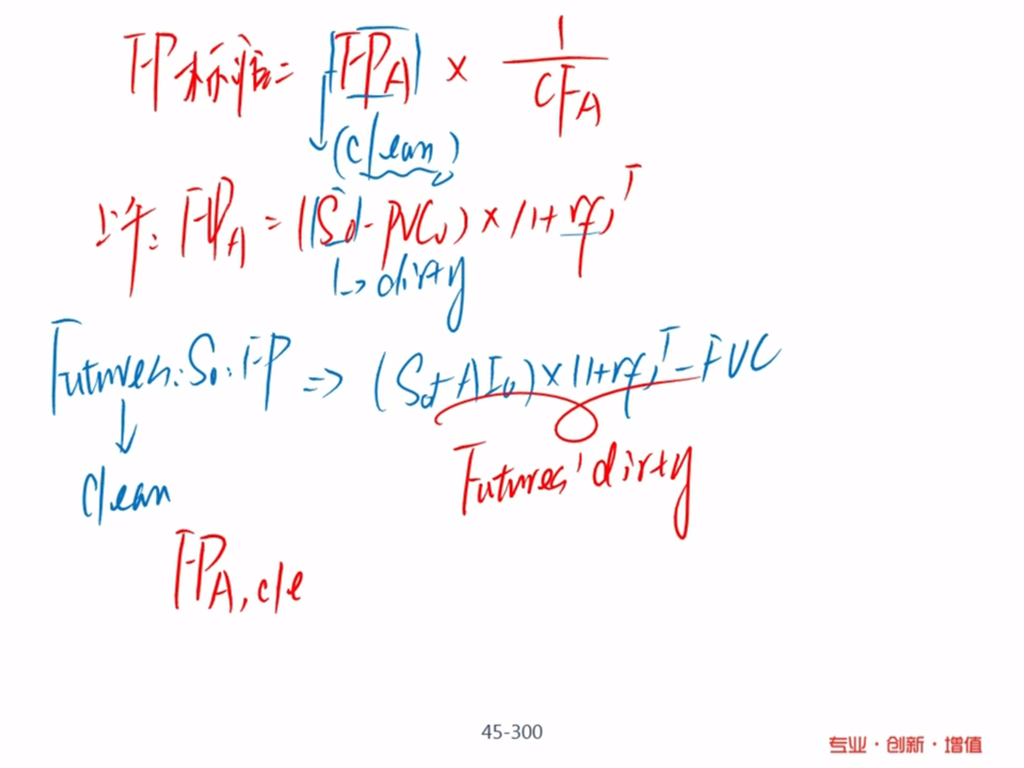 FP标准= |FPA| × 1/CFA
(clean)
上午: FPA = (S0 - PVC0) × (1+rf)^T
↳ dirty
Futures: S0: FP => (S0+AI0)×(1+rf)^T - FVC
clean
Futures' dirty
FPA, cle
45-300
专业·创新·增值